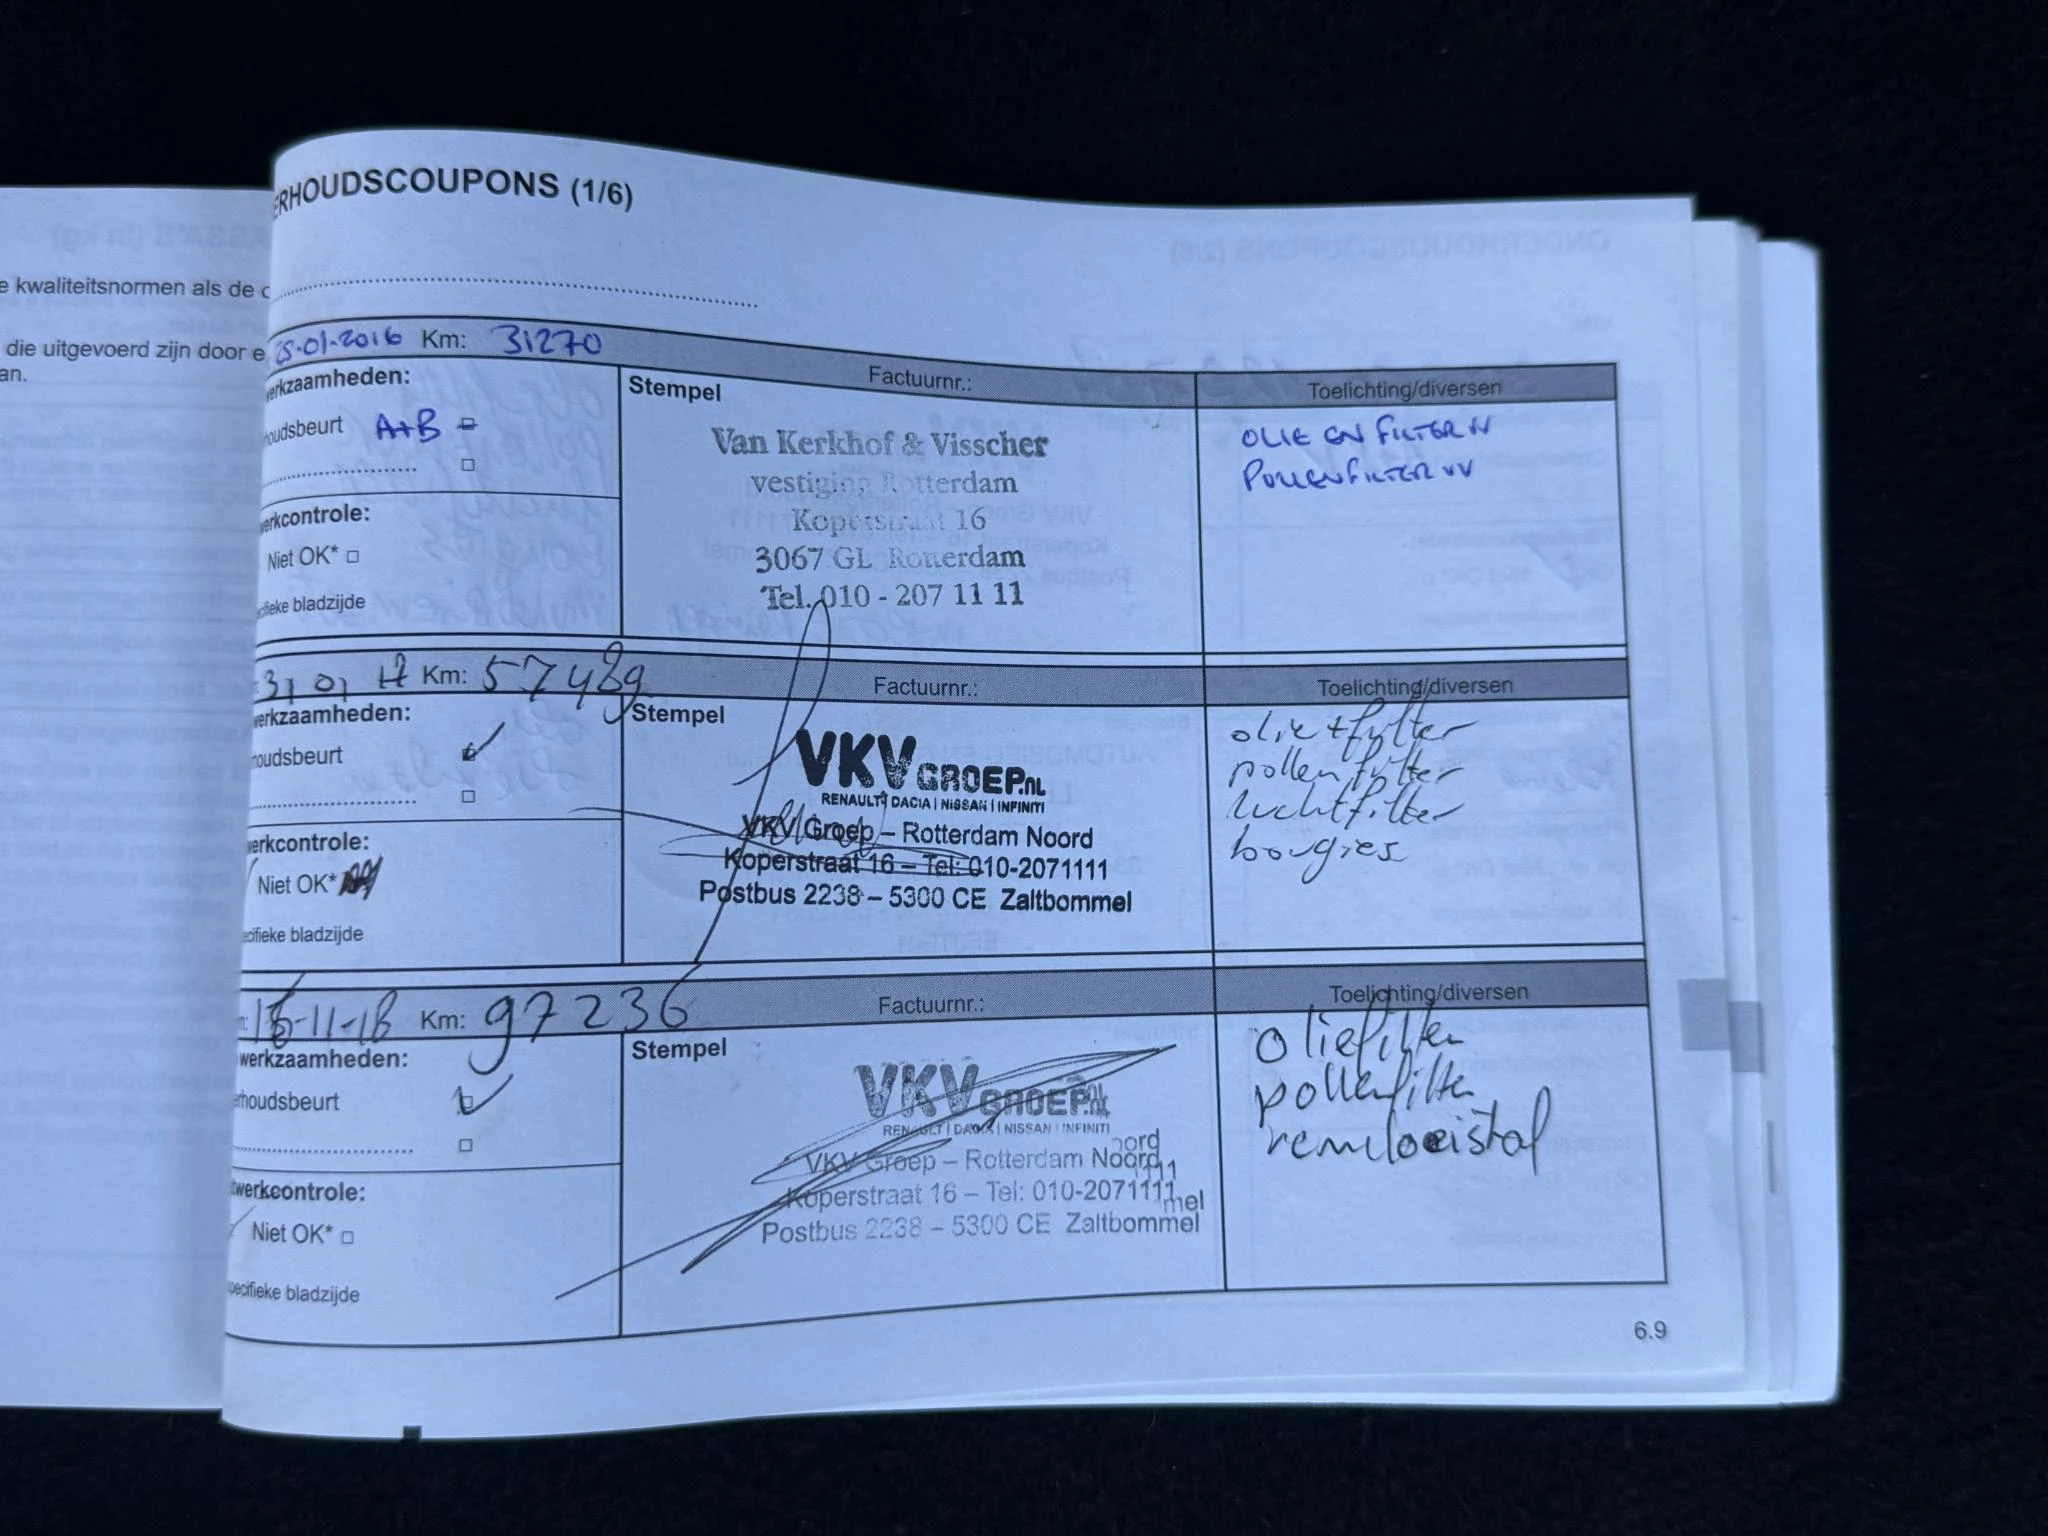 ERHOUDSCOUPONS (1/6)
e kwaliteitsnormen als de
die uitgevoerd zijn door e
an.
25-01-2016 Km: 31270
Factuurnr.:
Toelichting/diversen
erkzaamheden:
Stempel
oudsbeurt A+B
Niet OK*
erkcontrole:
ecifieke bladzijde
Van Kerkhof & Visscher
vestiging Rotterdam
Koperstraat 16
3067 GL Rotterdam
Tel. 010 - 207 11 11
OLIE EN FILTER VV
POLLENFILTER VV
31 01 17 Km: 57489
Factuurnr.:
Toelichting/diversen
erkzaamheden:
Stempel
oudsbeurt
erkcontrole:
Niet OK*
ecifieke bladzijde
VKVGROEP.NL
RENAULT | DACIA | NISSAN | INFINITI
VKV Groep – Rotterdam Noord
Koperstraat 16 – Tel: 010-2071111
Postbus 2238 – 5300 CE Zaltbommel
olie+filter
pollenfilter
luchtfilter
bougies
-11-18 Km: 97236
Factuurnr.:
Toelichting/diversen
werkzaamheden:
Stempel
erhoudsbeurt
twerkcontrole:
Niet OK*
pecifieke bladzijde
VKVGROEP.NL
RENAULT | DACIA | NISSAN | INFINITI
VKV Groep – Rotterdam Noord
Koperstraat 16 – Tel: 010-2071111
Postbus 2238 – 5300 CE Zaltbommel
oliefilter
pollenfilter
remvloeistof
6.9